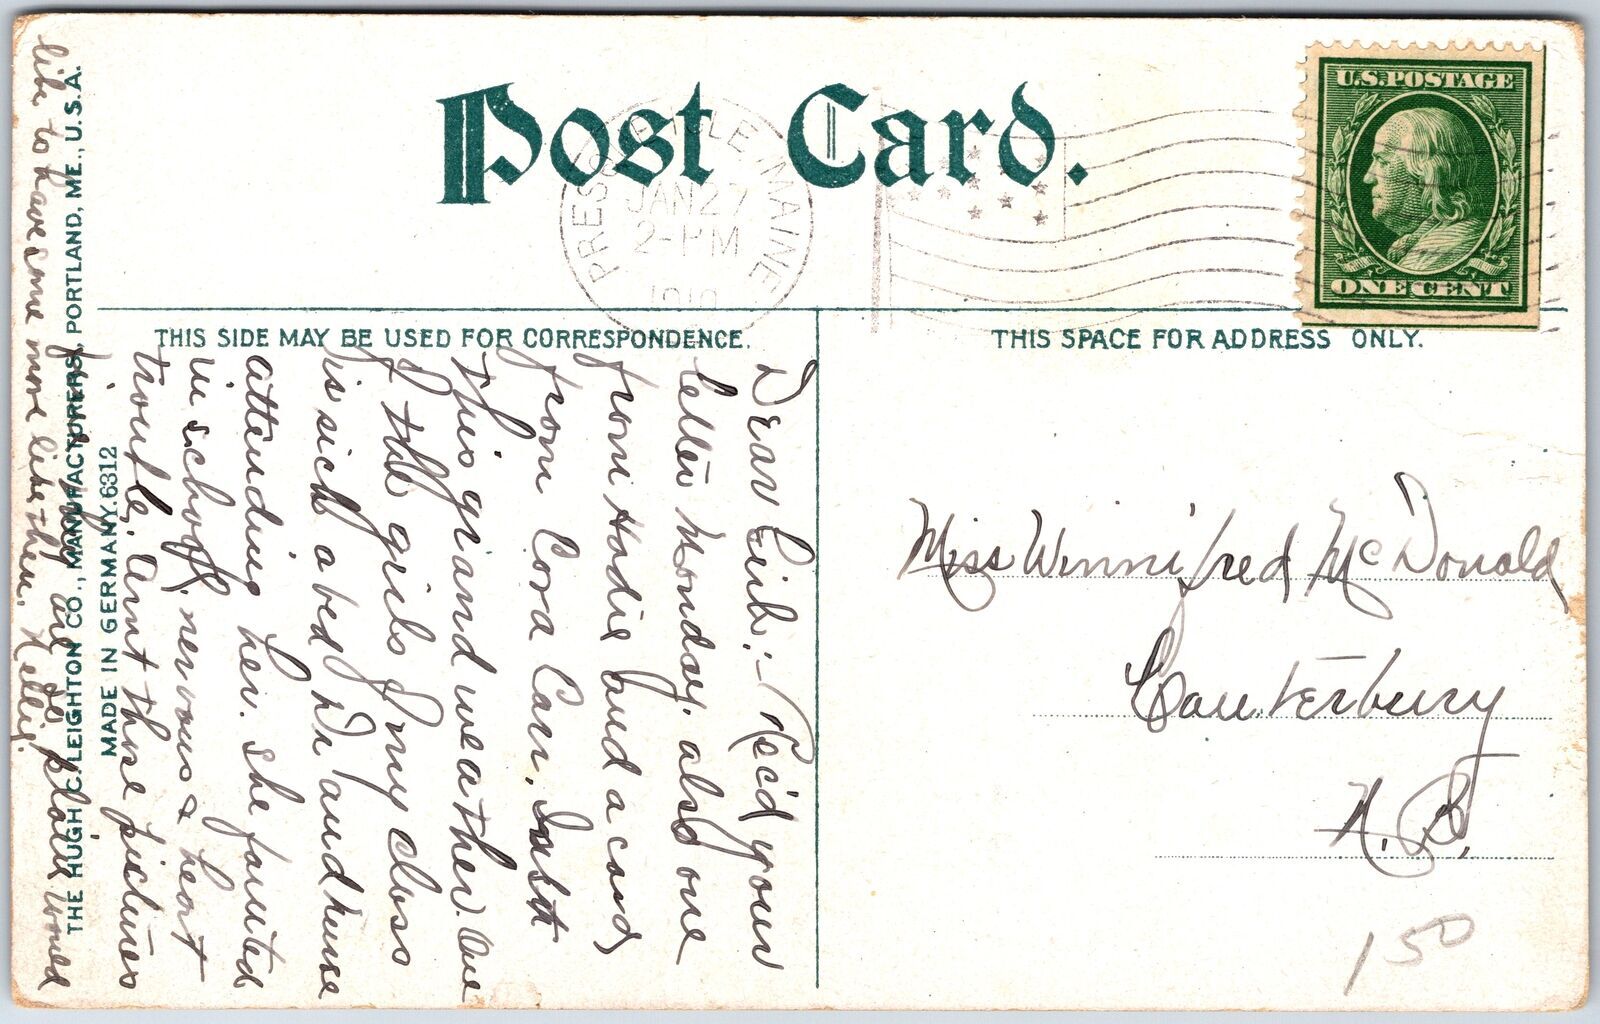 Post Card.
U.S. POSTAGE
ONE CENT
PRESQUE ISLE MAINE
JAN 27
2-PM
1910
THIS SIDE MAY BE USED FOR CORRESPONDENCE.
THIS SPACE FOR ADDRESS ONLY.
Dear :- Rec'd your
letter Monday, also one
from Hodie and a card
from Cora Carr.
This grand weather. One
of the girls of my class
is sick abed, Dr. and nurse
attending her. She fainted
in school, nervous & heart
trouble. Aunt those pictures
are plain would
like to have some more like them. Nellie.
Miss Winnifred McDonald
Canterbury
N. B.
150
THE HUGH C. LEIGHTON CO., MANUFACTURERS, PORTLAND, ME., U.S.A.
MADE IN GERMANY. 6312